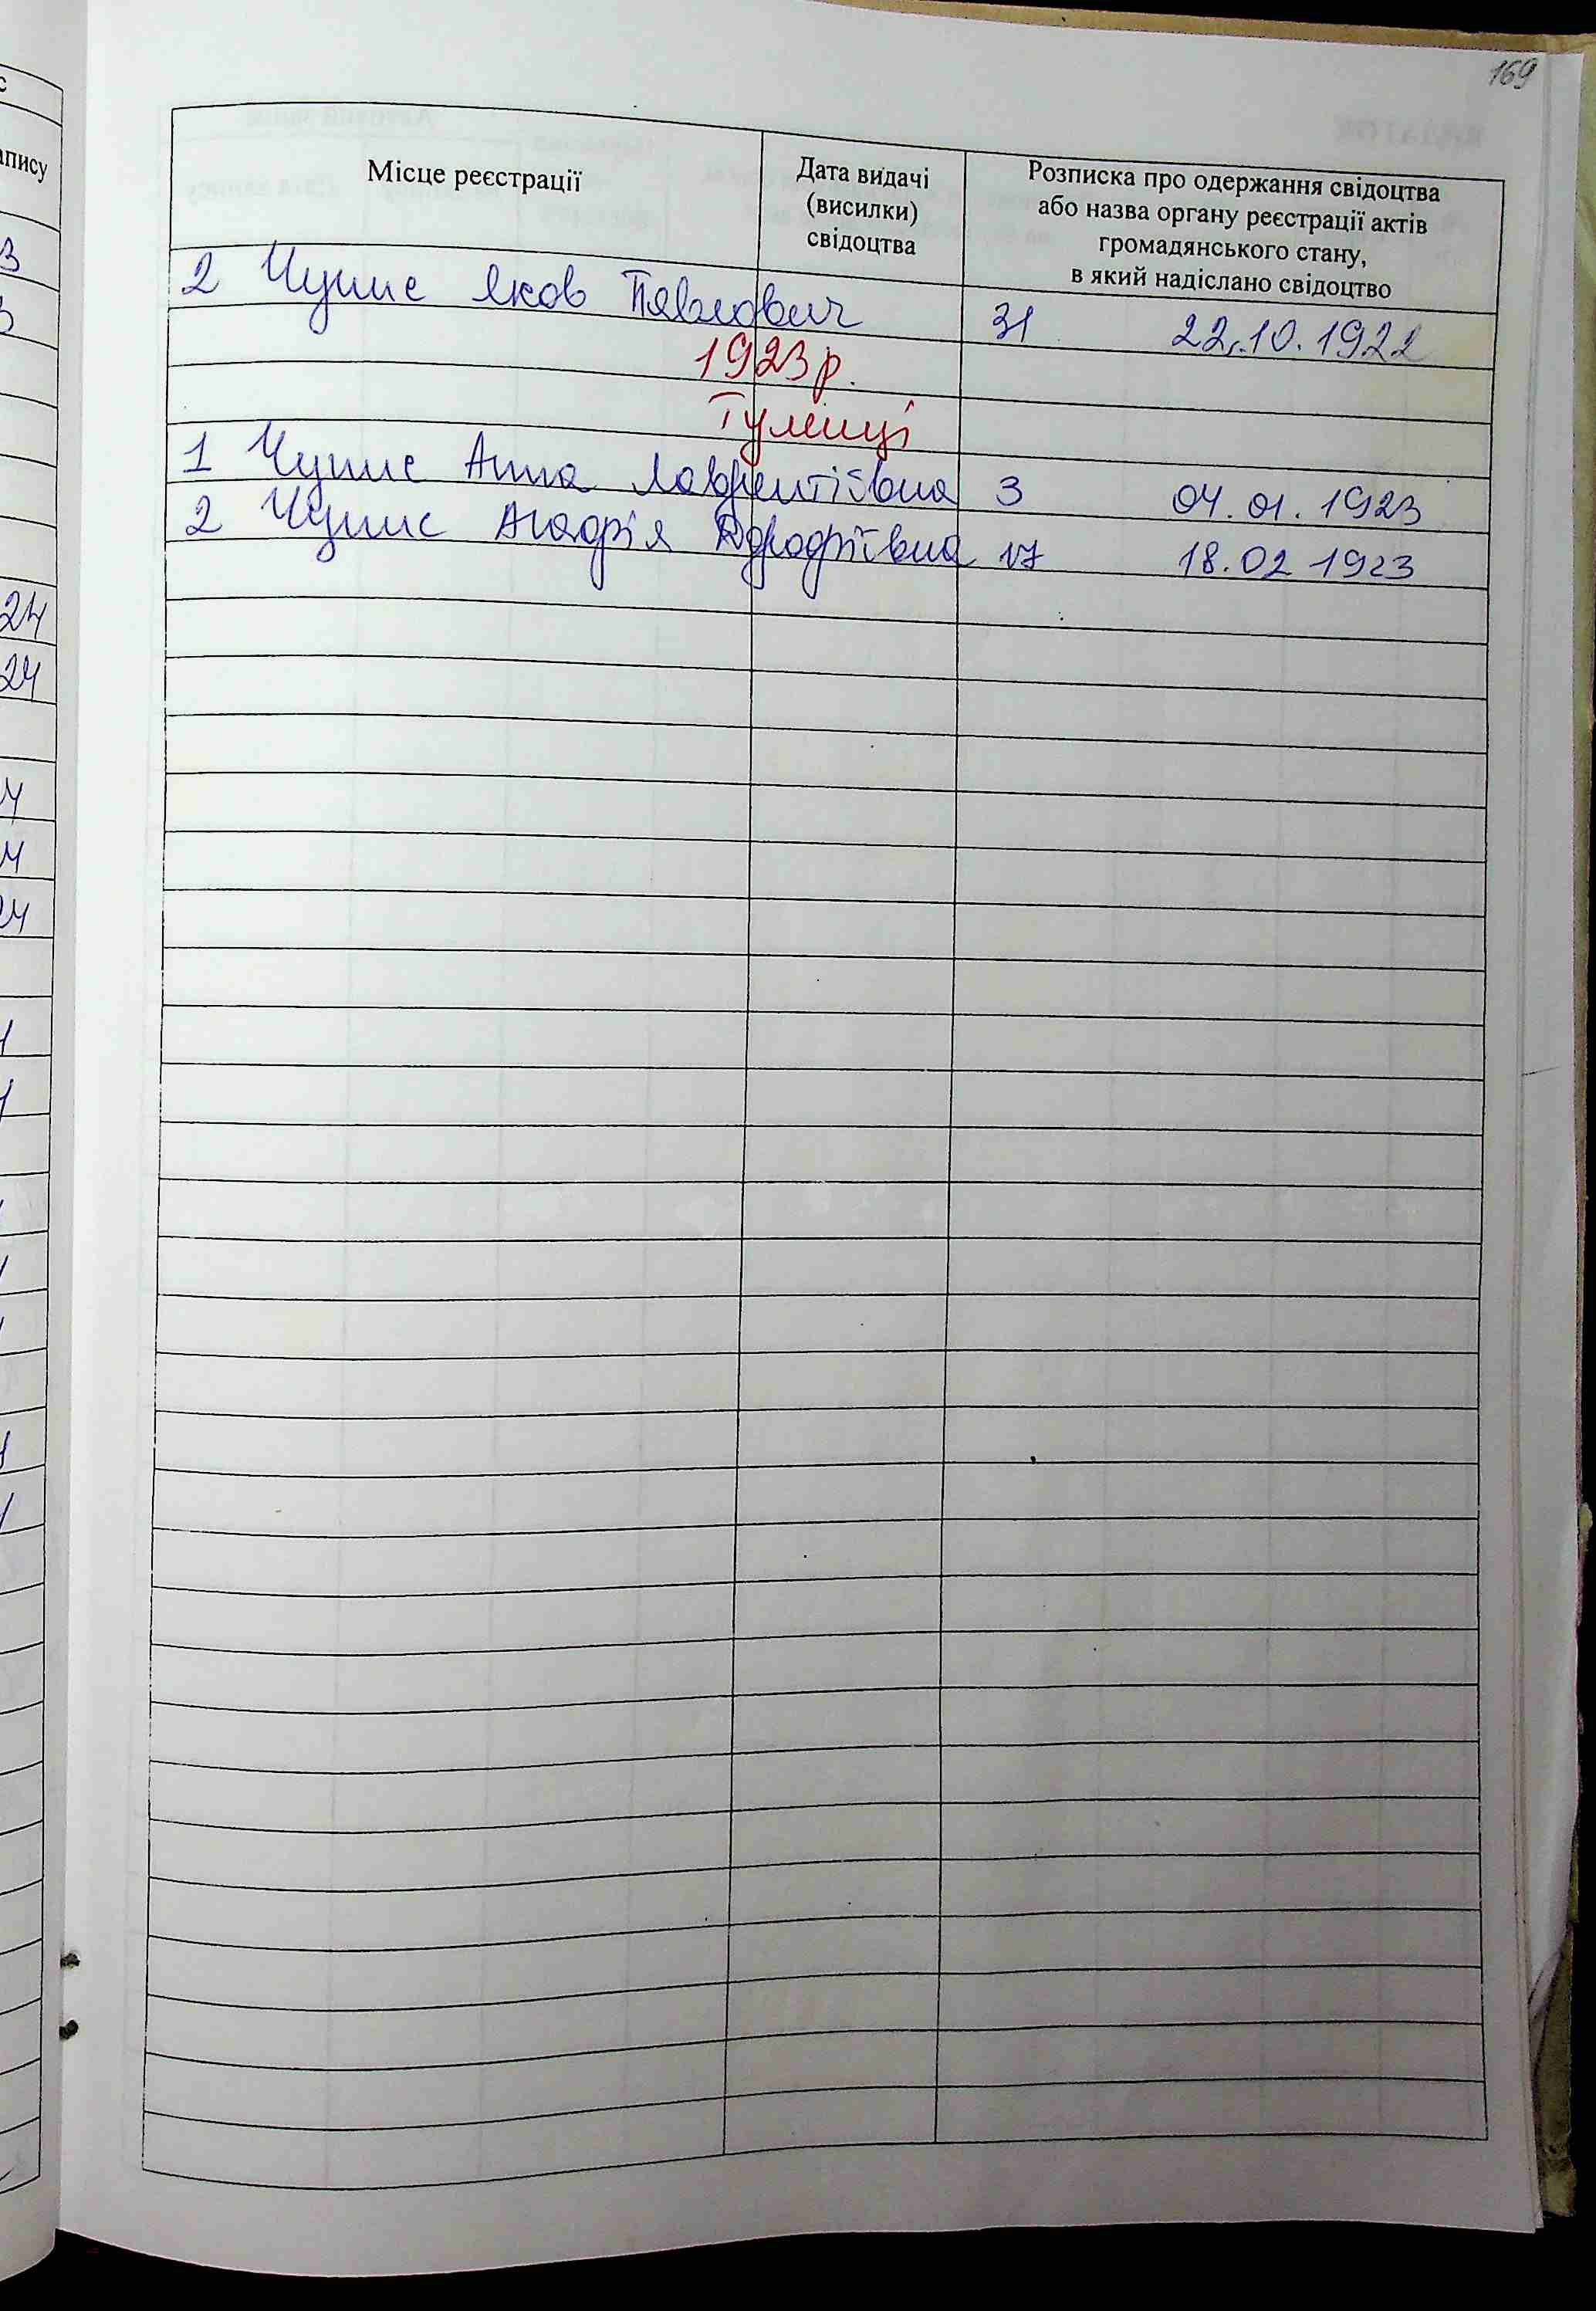 169
Місце реєстрації
Дата видачі
(висилки)
свідоцтва
Розписка про одержання свідоцтва
або назва органу реєстрації актів
громадянського стану,
в який надіслано свідоцтво
2 Чупис Яков Павлович 31 22.10.1922
1923р.
Тулинці
1 Чупис Анна Лаврентіївна 3 04.01.1923
2 Чупис Агафія 17 18.02 1923
апису
3
24
24